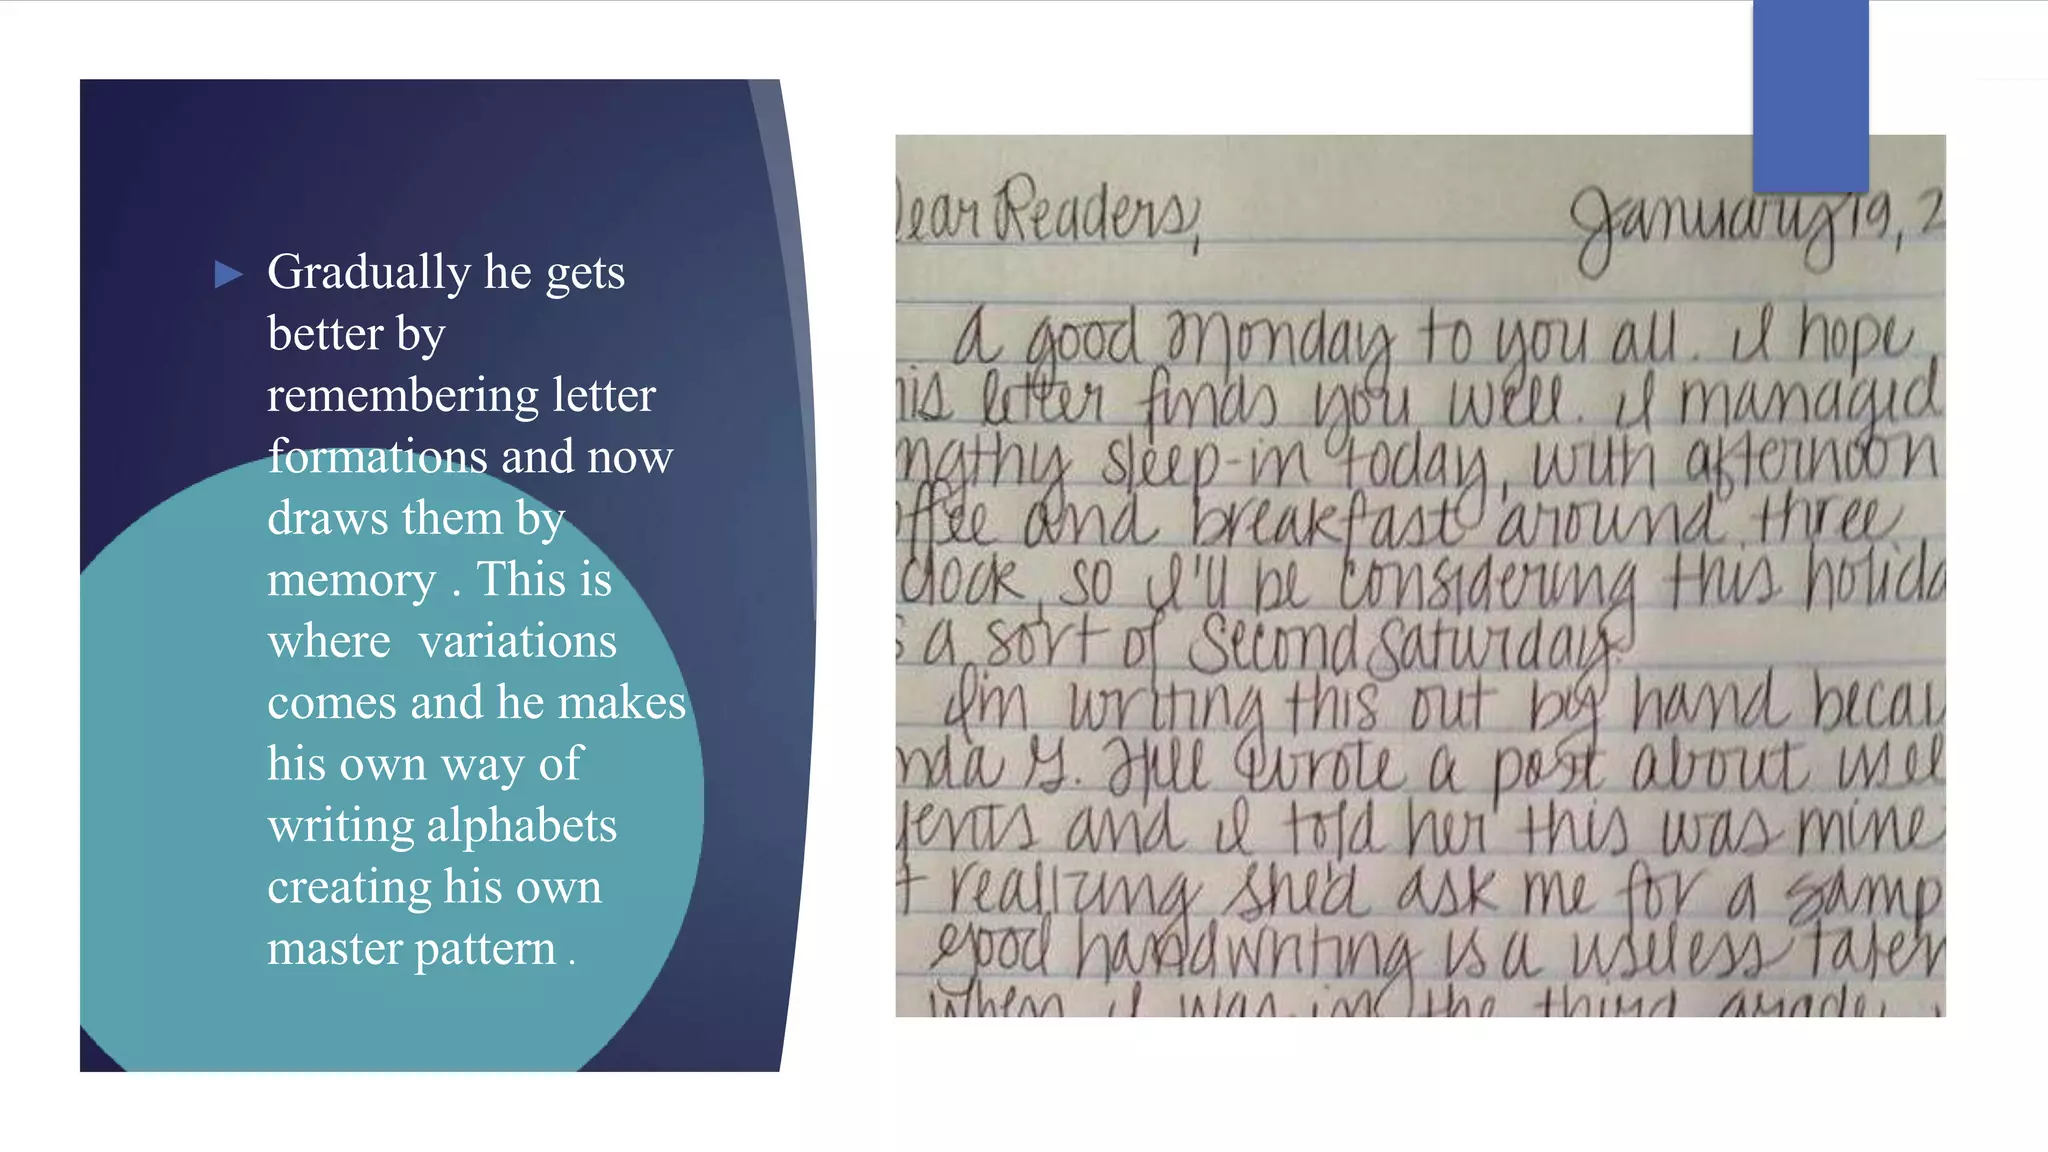 Gradually he gets
better by
remembering letter
formations and now
draws them by
memory . This is
where variations
comes and he makes
his own way of
writing alphabets
creating his own
master pattern .
Dear Readers,
January 19, 2
A good Monday to you all. I hope
his letter finds you well. I managed
ngthy sleep-in today, with afternoon
offee and breakfast around three
clock, so I'll be considering this holida
s a sort of Second Saturday.
I'm writing this out by hand becau
nda G. Hill wrote a post about usel
lents and I told her this was mine
t realizing she'd ask me for a samp
Good handwriting is a useless talen
When I was in the third grade,